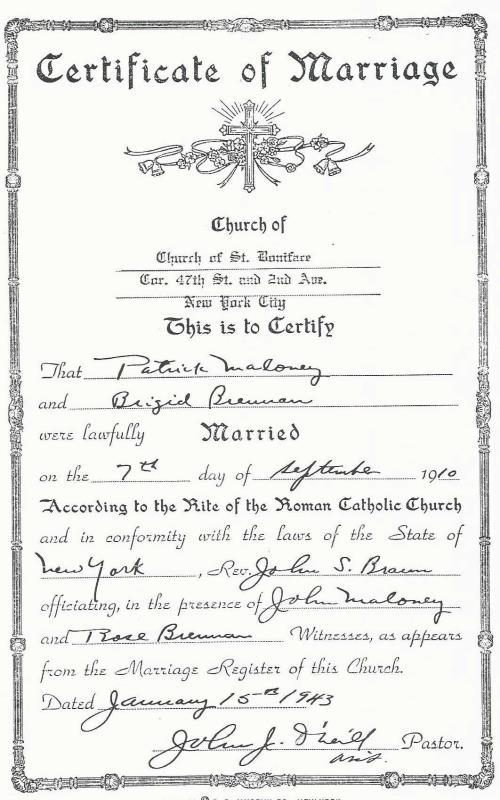 Certificate of Marriage
Church of
Church of St. Boniface
Cor. 47th St. and 2nd Ave.
New York City
This is to Certify
That Patrick Maloney
and Brigid Brennan
were lawfully Married
on the 7th day of September 1910
According to the Rite of the Roman Catholic Church
and in conformity with the laws of the State of
New York, Rev. John S. Braun
officiating, in the presence of John Maloney
and Rose Brennan Witnesses, as appears
from the Marriage Register of this Church.
Dated January 15th 1943
John J. O'Neill Pastor.
asst.